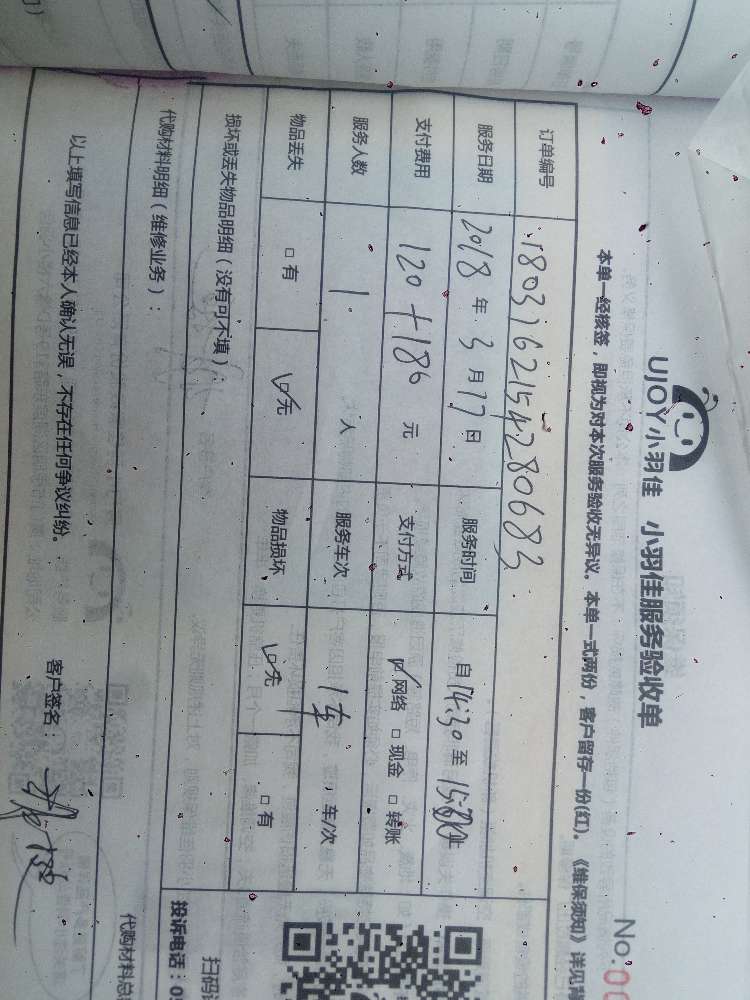 UJOY小羽佳 小羽佳服务验收单
No:00
本单一经核签，即视为对本次服务验收无异议。本单一式两份，客户留存一份(红)。《维保须知》详见背
订单编号 180317621542280683
服务日期 2018年3月17日 服务时间 自14:30至
支付费用 120+186元 支付方式 ☑网络 □现金 □转账
服务人数 1人 服务车次 1车 车/次
物品丢失 □有 ☑无 物品损坏 ☑无 □有
损坏或丢失物品明细（没有可不填）：
扫码
投诉电话：05
代购材料明细（维修业务）：
代购材料总
以上填写信息已经本人确认无误，不存在任何争议纠纷。 客户签名：